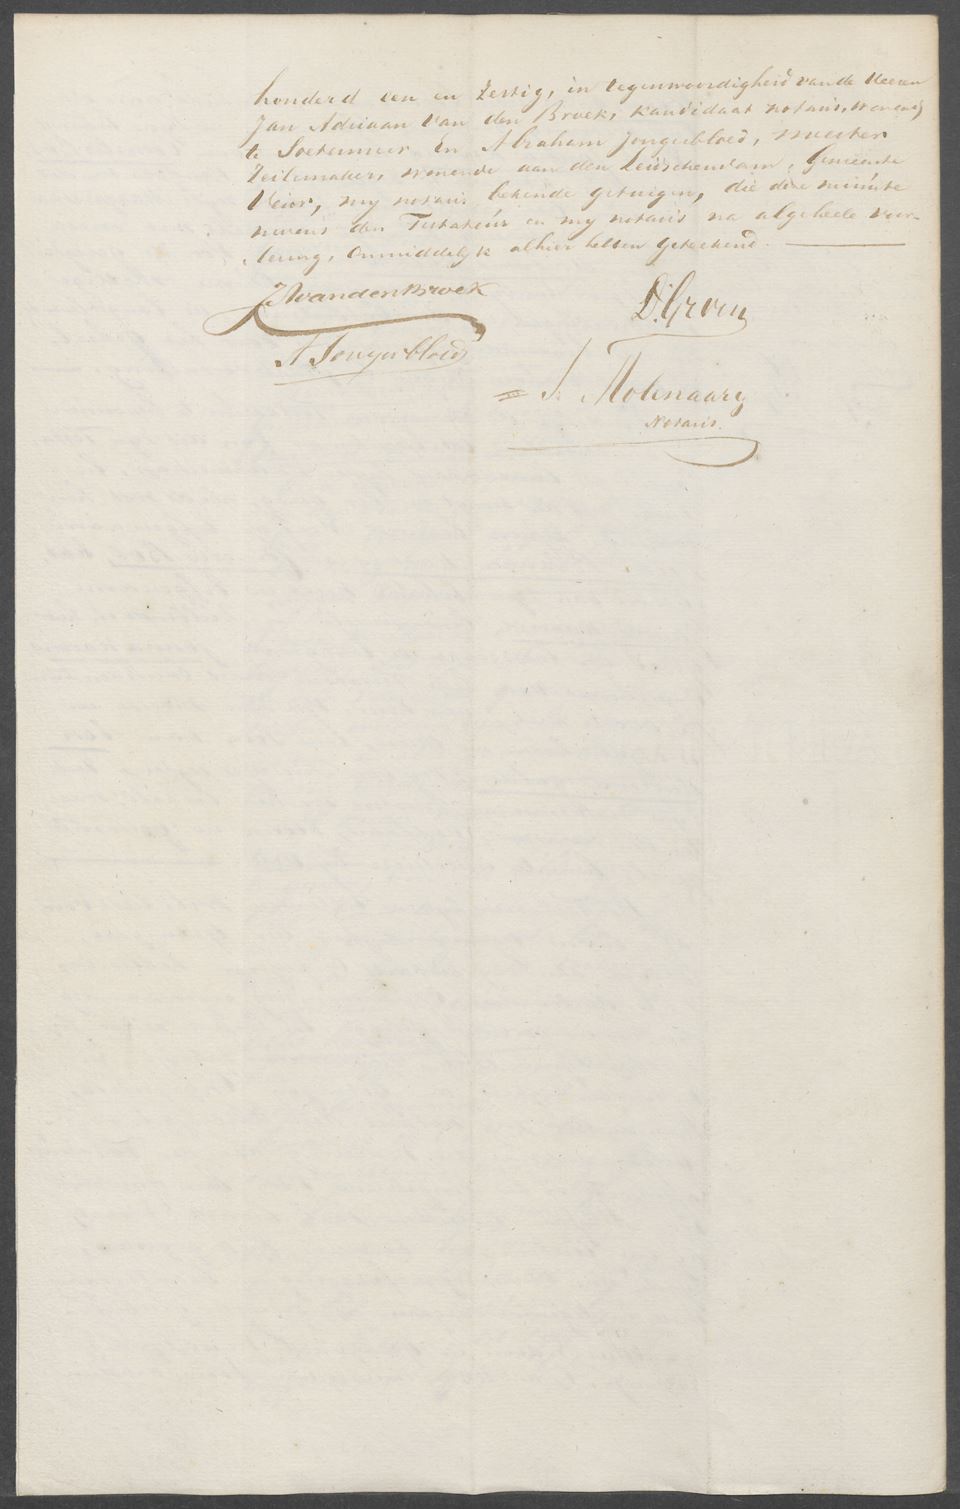 honderd een en zestig, in tegenwoordigheid van de Heeren
Jan Adriaan van den Broek, kandidaat notaris, wonende
te Soetermeer en Abraham Jongerbloed, meester
Zeilemaker, wonende aan den Leidschendam, Gemeente
Veur, my notaris bekende getuigen, die deze minute
nevens den Testateur en my notaris na algeheele voor-
lezing, onmiddelyk alhier hebben geteekend.
JAvandenBroek
D. Groen
A Jongerbloed
J. Molenaar
Notaris.